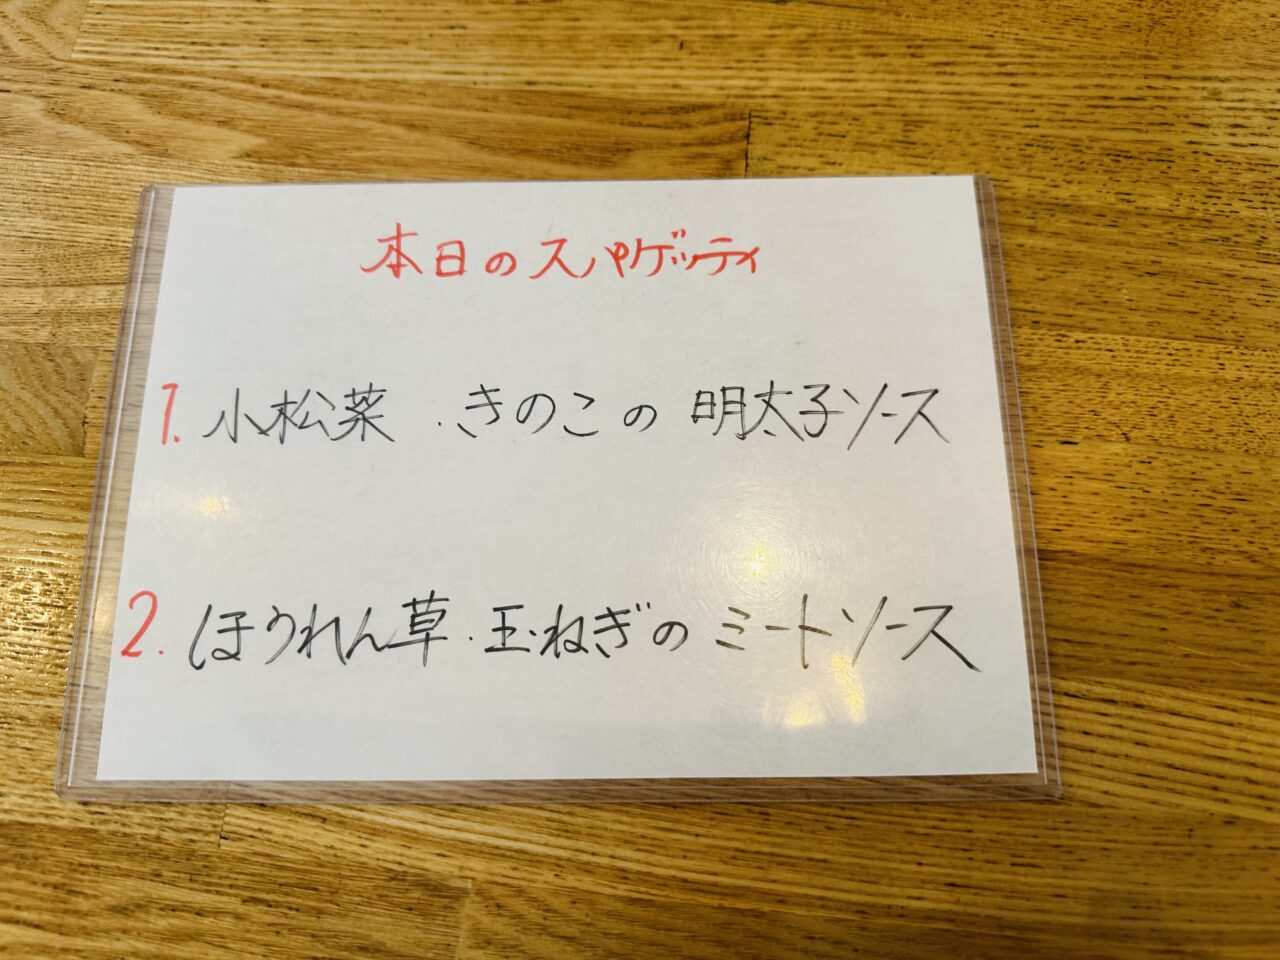 本日のスパゲッティ
1. 小松菜・きのこの 明太子ソース
2. ほうれん草・玉ねぎの ミートソース